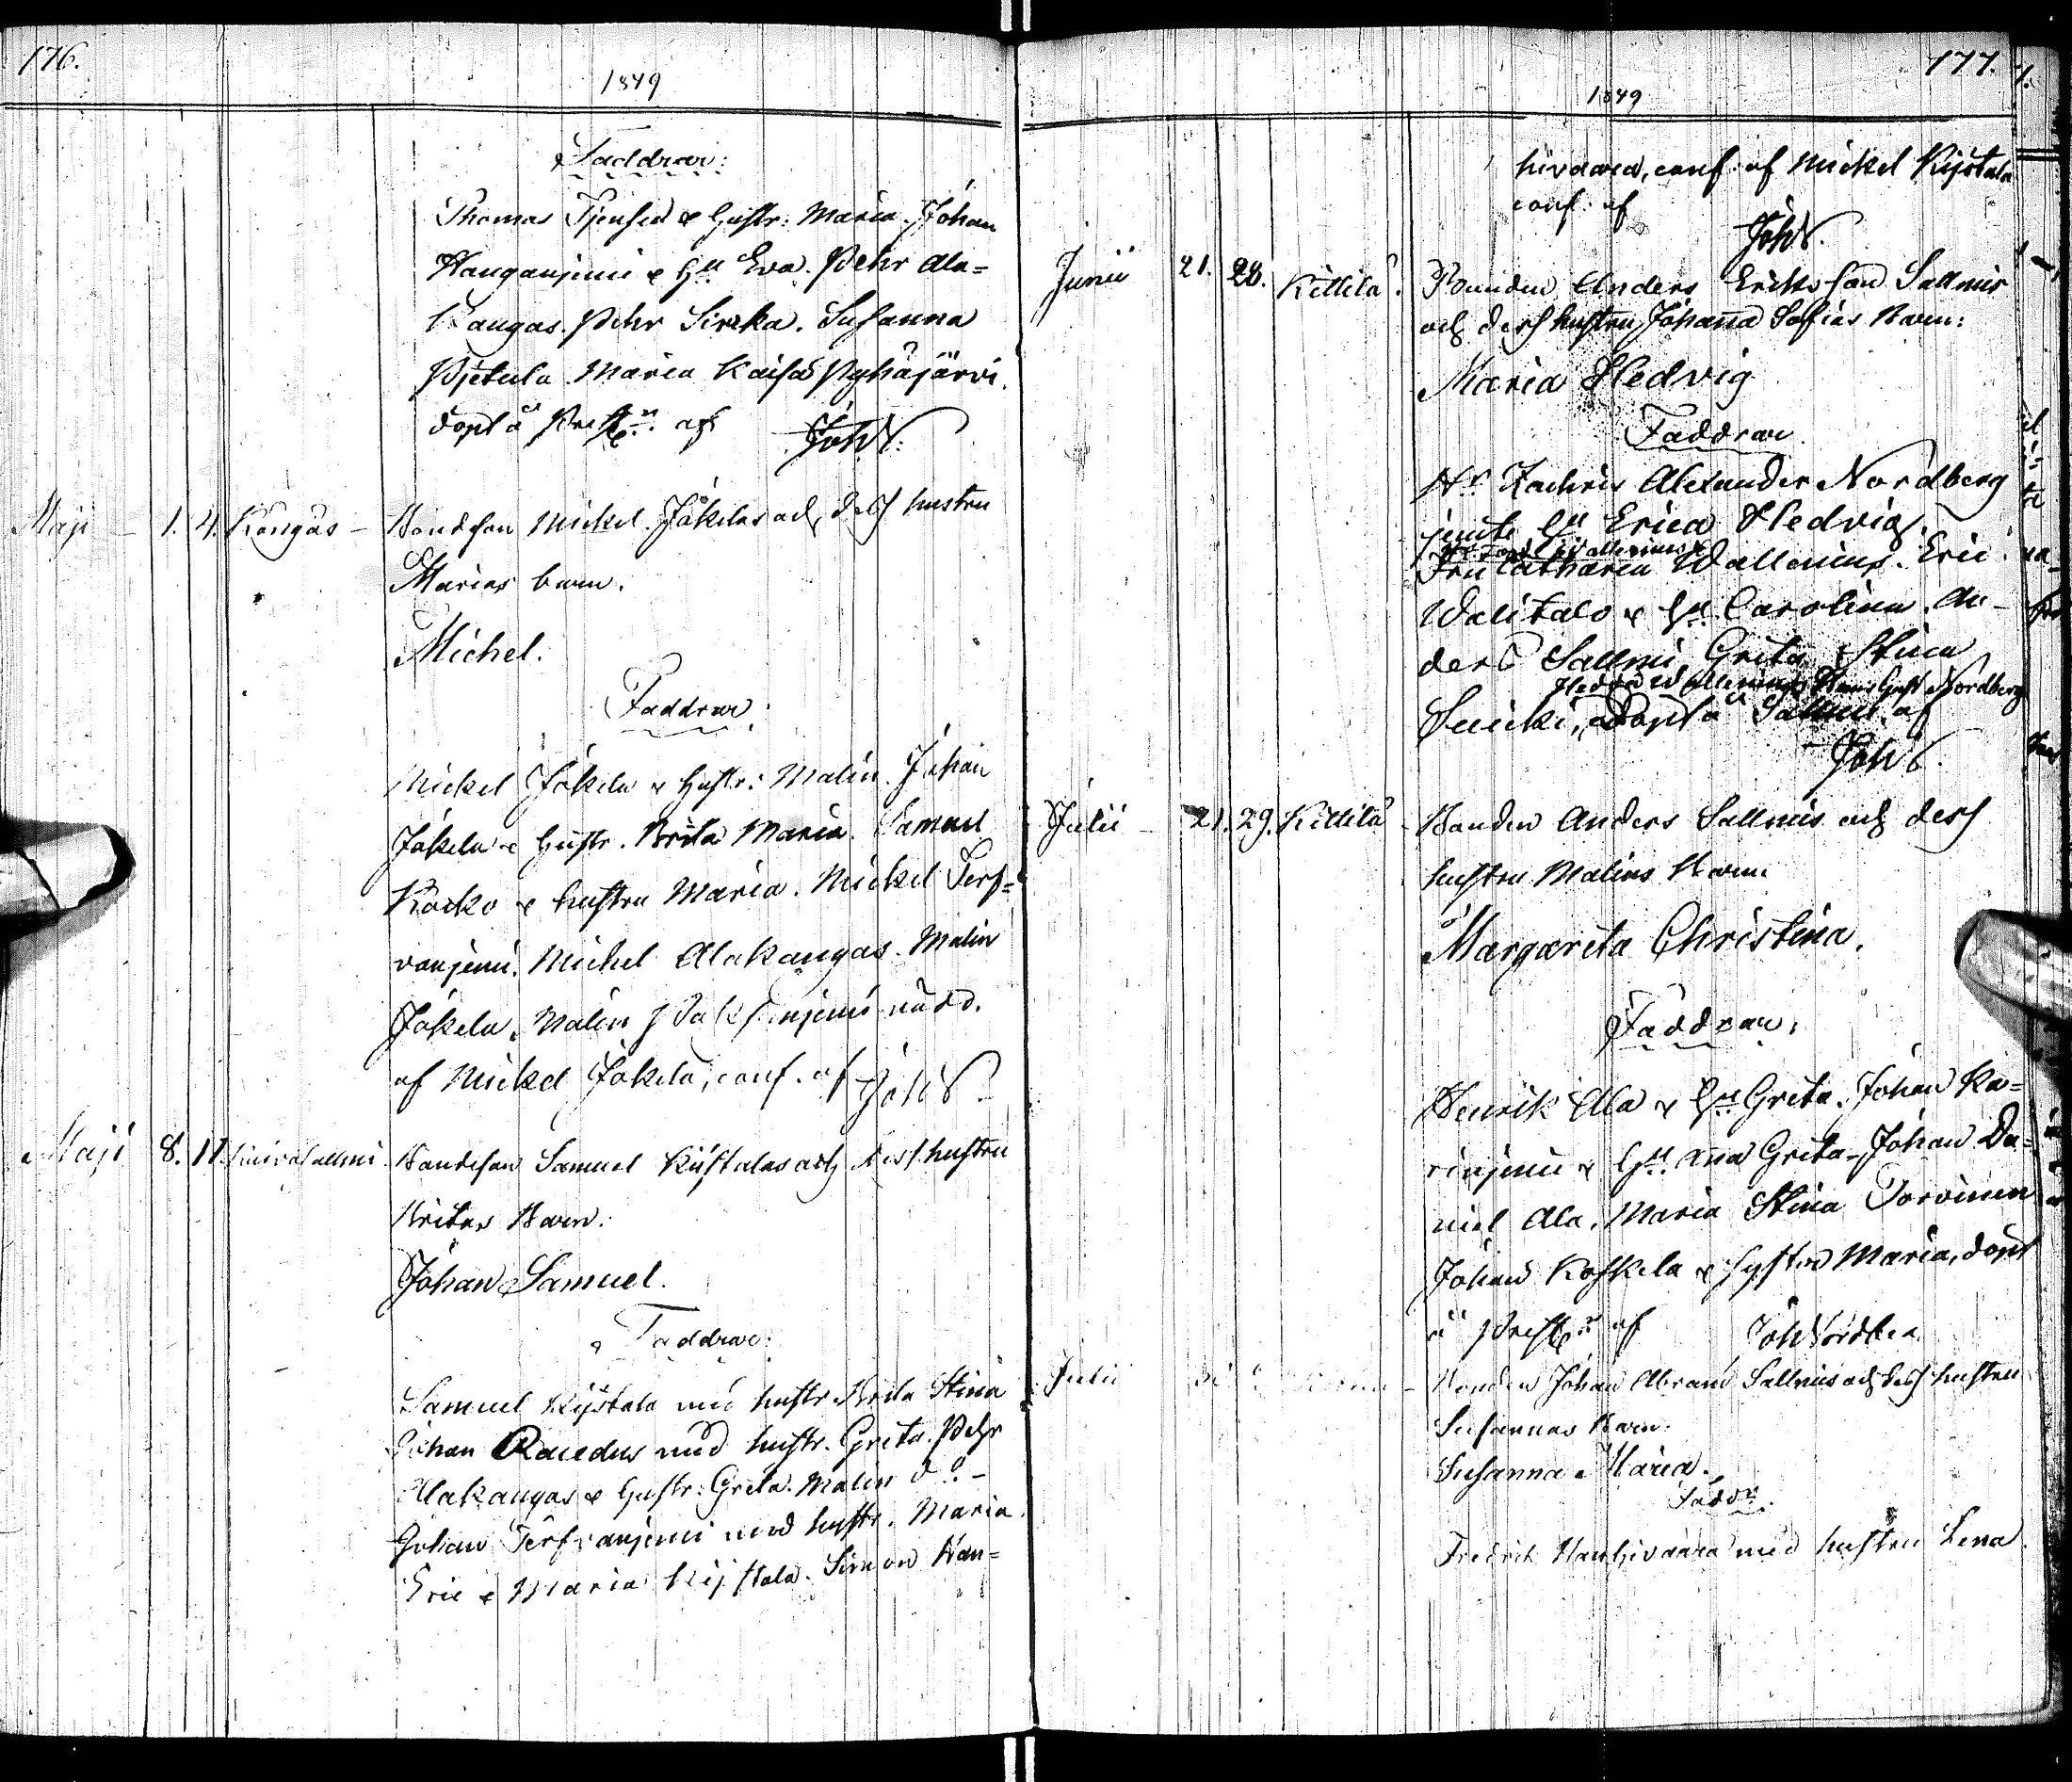 176.
1849
Faddrar:
Thomas Tjensed & hustr: Maria. Johan
Hanganjemi & Hu Eva. Pehr Ala=
Kangas. Pehr Sirkka. Susanna
Pjetula Maria Kaisa Pyhäjärvi.
döpt å Prestg:n af JohN.
Maji - 1. 4. Kangas - Bondson Mickel Jåkelas och dess hustru
Marias barn.
Michel.
Faddrar:
Mickel Jåkela & hustr: Malin. Johan
Jåkela & hustr. Brita Maria. Samuel
Råcko & hustru Maria. Mickel Terf=
vanjemi. Michel Alakangas. Malin
Jåkela. Malin njemi nödd.
af Mickel Jåkela, conf. af JohN.
Maji 8. 11. Bondeson Samuel Kistalas och dess hustru
Britas Barn.
Johan Samuel.
Faddrar:
Samuel Kijstala med hustr. Brita Stina
Johan Raredus med hustr. Greta. Pehr
Alakangas & hustr: Greta. Malin do. -
Johan Terfvanjemi med hustr. Maria.
Eric & Maria Kijstala. Simon Han=
177.
1849
hivaara, conf. af Mickel Kijstala
conf. af
JohN.
Junii 21. 28. Kittilä. Bonden Anders Eriksson Sallmis
och dess hustru Johanna Sofias Barn:
Maria Hedvig
Faddrar
Hr Zachris Alexander Nordberg
jemte Hu Erica Hedvig.
Wallenius &
Fru Catharina Wallenius. Eric
Walitalo & Hu Carolina. An-
ders Sallmi, Greta Stina
Hedda Wallenius Hans Gust Nordberg
Snicki, döpt å Sallmi af
JohN.
Julii - 21. 29. Kittilä - Bonden Anders Sallmis och dess
hustru Malins Barn:
Margareta Christina.
Faddrar,
Henrik Ala & Hu Greta. Johan Ka=
rinjemi & Hu Greta - Johan Da=
niel Ala. Maria Stina Torvinen
Johan Koskela & hustru Maria, döpt
å Prestg:n af JohNordber
Julii Bonden Johan Abram Sallmis och dess hustru
Susannas Barn:
Susanna Maria.
Faddr.
Fredrik Hanhivaara med hustru Lena